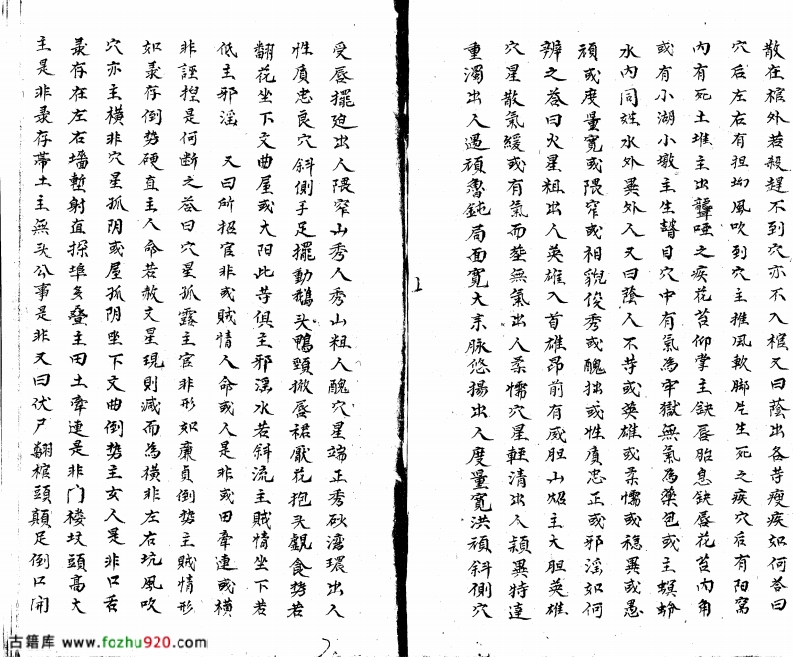 散在棺外若殺趕不到穴亦不入棺又曰蔭出各等瘦疾如何答曰
穴后左右有坦坳風吹到穴主摧風軟腳足生死之疾穴后有阳窩
內有死土堆主出聾啞之疾花苔仰掌主缺唇胎息缺唇花苔內角
或有小湖小墩主生瞽目穴中有氣為牢獄無氣為藥包或主螟蛉
水內同姓水外異外人又曰蔭人不等或英雄或柔懦或穏異或愚
頑或度量寬或隈窄或相貌俊秀或醜拙或性質忠正或邪淫如何
辨之答曰火星粗出人英雄入首雄昂前有威胆山焰主大胆英雄
穴星散氣緩或有氣而塟無氣出人柔懦穴星輕清出人穎異特達
重濁出人過頑魯鈍局面寬大來脉悠揚出人度量寬洪頑斜側穴
受唇擺廹出人隈窄山秀人秀山粗人醜穴星端正秀砍灣環出人
性質忠良穴斜側手足擺動鵝头鴨頸掀唇裙厭花抱头觀食勢若
翻花坐下文曲屋或太阳此等俱主邪淫水若斜流主賊情坐下若
低主邪淫 又曰所招官非或賊情人命或人是非或田牽連或橫
非誣揑是何断之答曰穴星孤露主官非形如廉貞倒勢主賊情形
如彔存倒勢硬直主人命若赦文星現則減而為橫非左右坑風吹
穴亦主橫非穴星孤阴或屋孤阴坐下文曲倒勢主女人是非口舌
彔存在左右墻塹射直探埠多疊主田土牽連是非门楼坟頭高大
主是非彔存帶土主無头公事是非又曰伏尸翻棺頭顛足倒口開
上
古籍库 www.fozhu920.com